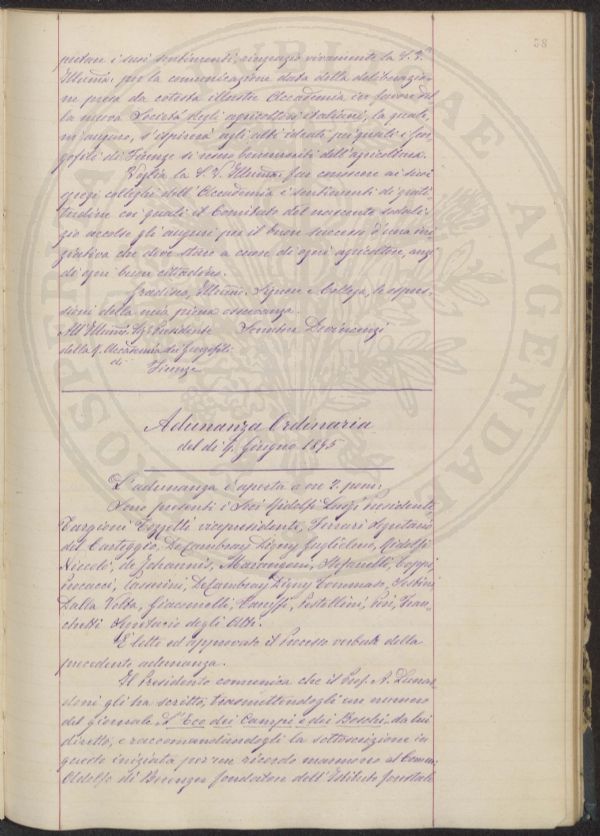 58
pretare i suoi sentimenti, ringrazio vivamente la S. V.
Illma. per la comunicazione data della deliberazio-
ne presa da cotesta illustre Accademia in favore del
la nuova Società degli agricoltori italiani, la quale,
m'auguro, s'ispirerà agli alti ideali pei quali i Geor
gofili di Firenze si sono benemeriti dell'agricoltura.
Voglia la S. V. Illma. far conoscere ai suoi
egregi colleghi dell'Accademia i sentimenti di grati-
tudine coi quali il Comitato del nascente sodali-
zio accolse gli auguri per il buon successo d'una ini
ziativa che deve stare a cuore di ogni agricoltore, anzi
di ogni buon cittadino.
Gradisca, Illmo. Signore e Collega, le espres-
sioni della mia piena osservanza.
All'Illmo. Sig. Presidente Senatore Devincenzi
della R. Accademia dei Georgofili
di Firenze
Adunanza Ordinaria
del dì 9. Giugno 1895
L'adunanza è aperta a ore 2. pom:
Sono presenti i Soci Ridolfi Luigi Presidente,
Targioni Tozzetti vicepresidente, Ferrari Segretario
del Carteggio, De Cambray Digny Guglielmo, Ridolfi
Niccolò, de Johannis, Marangoni, Stefanelli, Coppi,
Pucacci, Passerini, De Cambray Digny Tommaso, Sestini
Dalla Volta, Giacomelli, Caruffi, Pestellini, Pini, Fran-
chetti Segretario degli Atti.
È letto ed approvato il Processo verbale della
precedente adunanza.
Il Presidente comunica che il Prof. A. Lunar-
doni gli ha scritto, trasmettendogli un numero
del giornale L'Eco dei Campi e dei Boschi, da lui
diretto, e raccomandandogli la sottoscrizione in
questo iniziata per un ricordo marmoreo al Comm.
Adolfo di Berenger fondatore dell'Istituto forestale